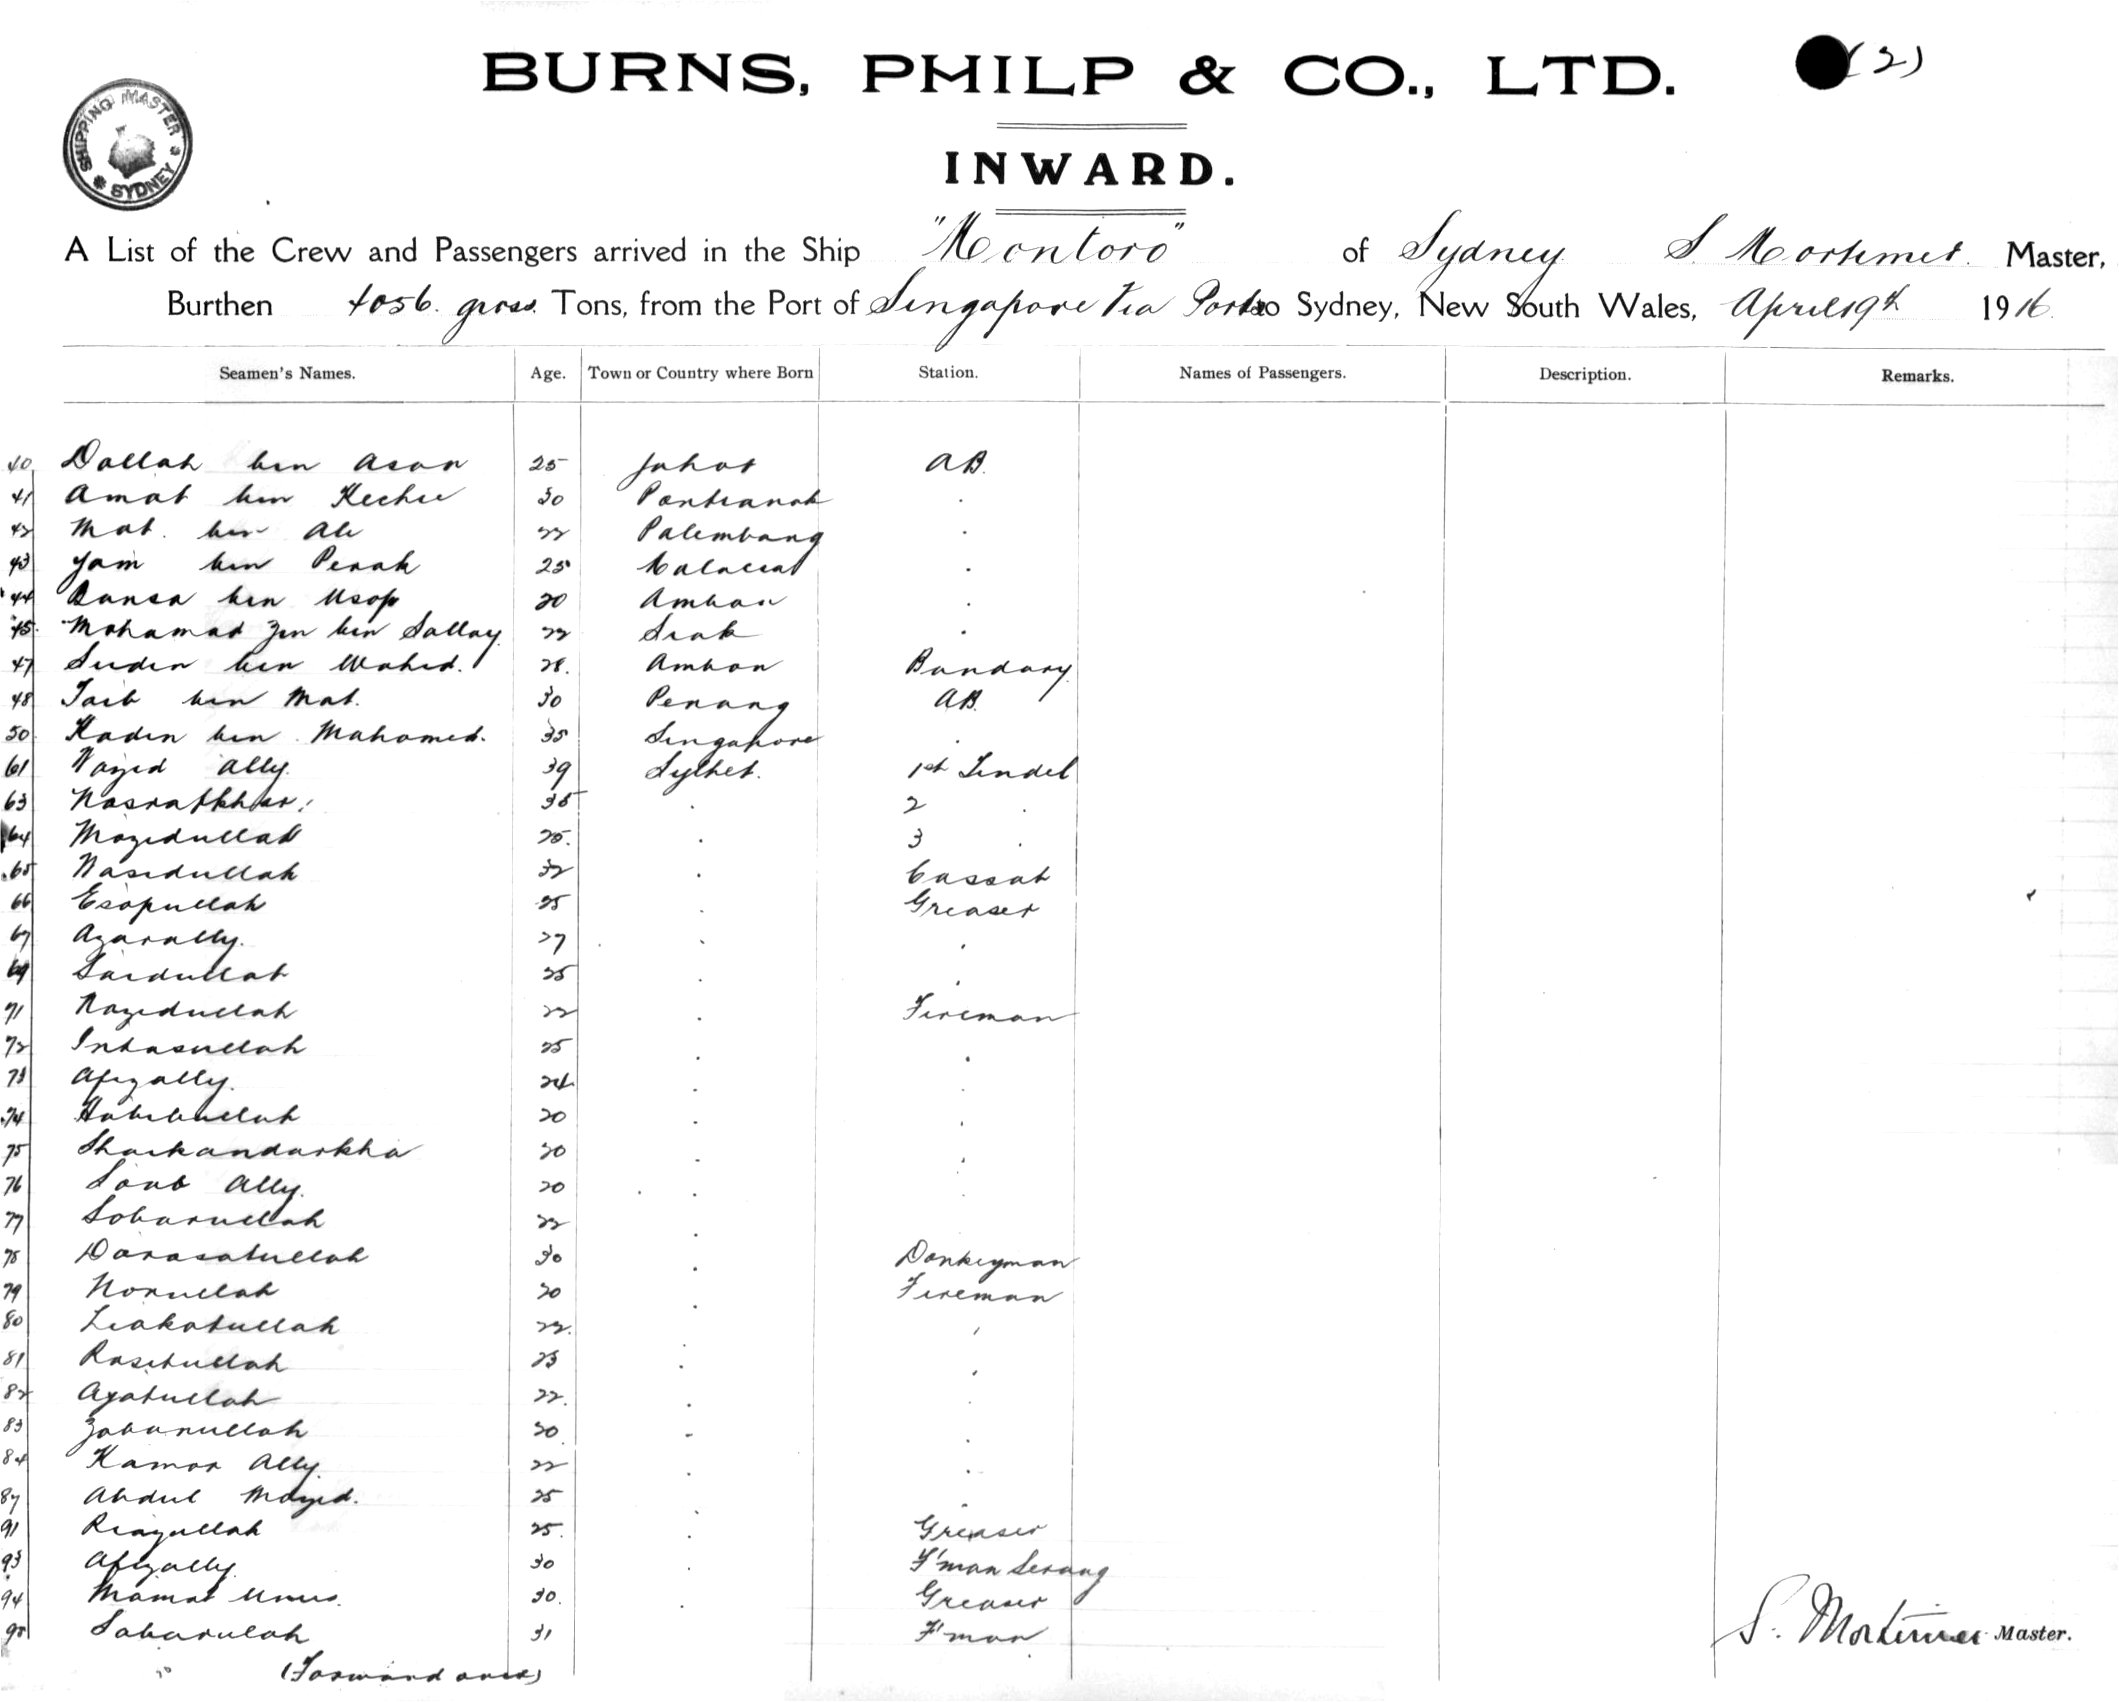 BURNS, PHILP & CO., LTD. (2)
SHIPPING MASTER SYDNEY
INWARD.
A List of the Crew and Passengers arrived in the Ship "Montoro" of Sydney S. Mortimer. Master,
Burthen 4056. gross. Tons, from the Port of Singapore Via Ports to Sydney, New South Wales, April 19th 1916.
Seamen's Names. Age. Town or Country where Born Station. Names of Passengers. Description. Remarks.
40 Dollah bin Asan 25 Johor AB.
41 Amat bin Kechie 30 Pontianak .
42 Mat. bin Ali 22 Palembang .
43 Yam bin Perak 25 Malacca .
44 bin Usop 20 Ambon .
45. Mohamad Zin bin Sallay. 22 Siak .
47 Sudin bin Wahid. 28. Ambon Bandary.
48 Taib bin Mat. 30 Penang AB.
50. Kadin bin Mahomed. 35 Singapore .
61 Wazid Ally. 39 Sylhet. 1st Tindel
63 35 . 2 .
64 Mozidullah 25. . 3 .
65 Nasidullah 32 Cassab
66 Esopullah 25 . Greaser
67 Azarally. 27 . .
69 Saidullah 25 . .
71 Nazidullah 22 . Fireman
72 Intasullah 25 . .
73 Afizally. 24. . .
74 Habibullah 20 . .
75 Shaikandarkha 20 . .
76 Sonb Ally. 20 . .
77 Sobarullah 22 .
78 Darasatullah 30 . Donkeyman
79 Norullah 20 . Fireman
80 Liakatullah 22. ,
81 Rasidullah 23 . .
82 Ayatullah 22. . .
83 Zabanullah 20. - .
84 Kamor Ally. 22 . .
87 Abdul Mozid. 25 . .
91 Riazullah 25. . Greaser
93 Afizally. 30 . F'man Serang
94 Mamat Unus. 30. . Greaser
95 Sabarulah 31 F'man
(Forward over)
S. Mortimer Master.